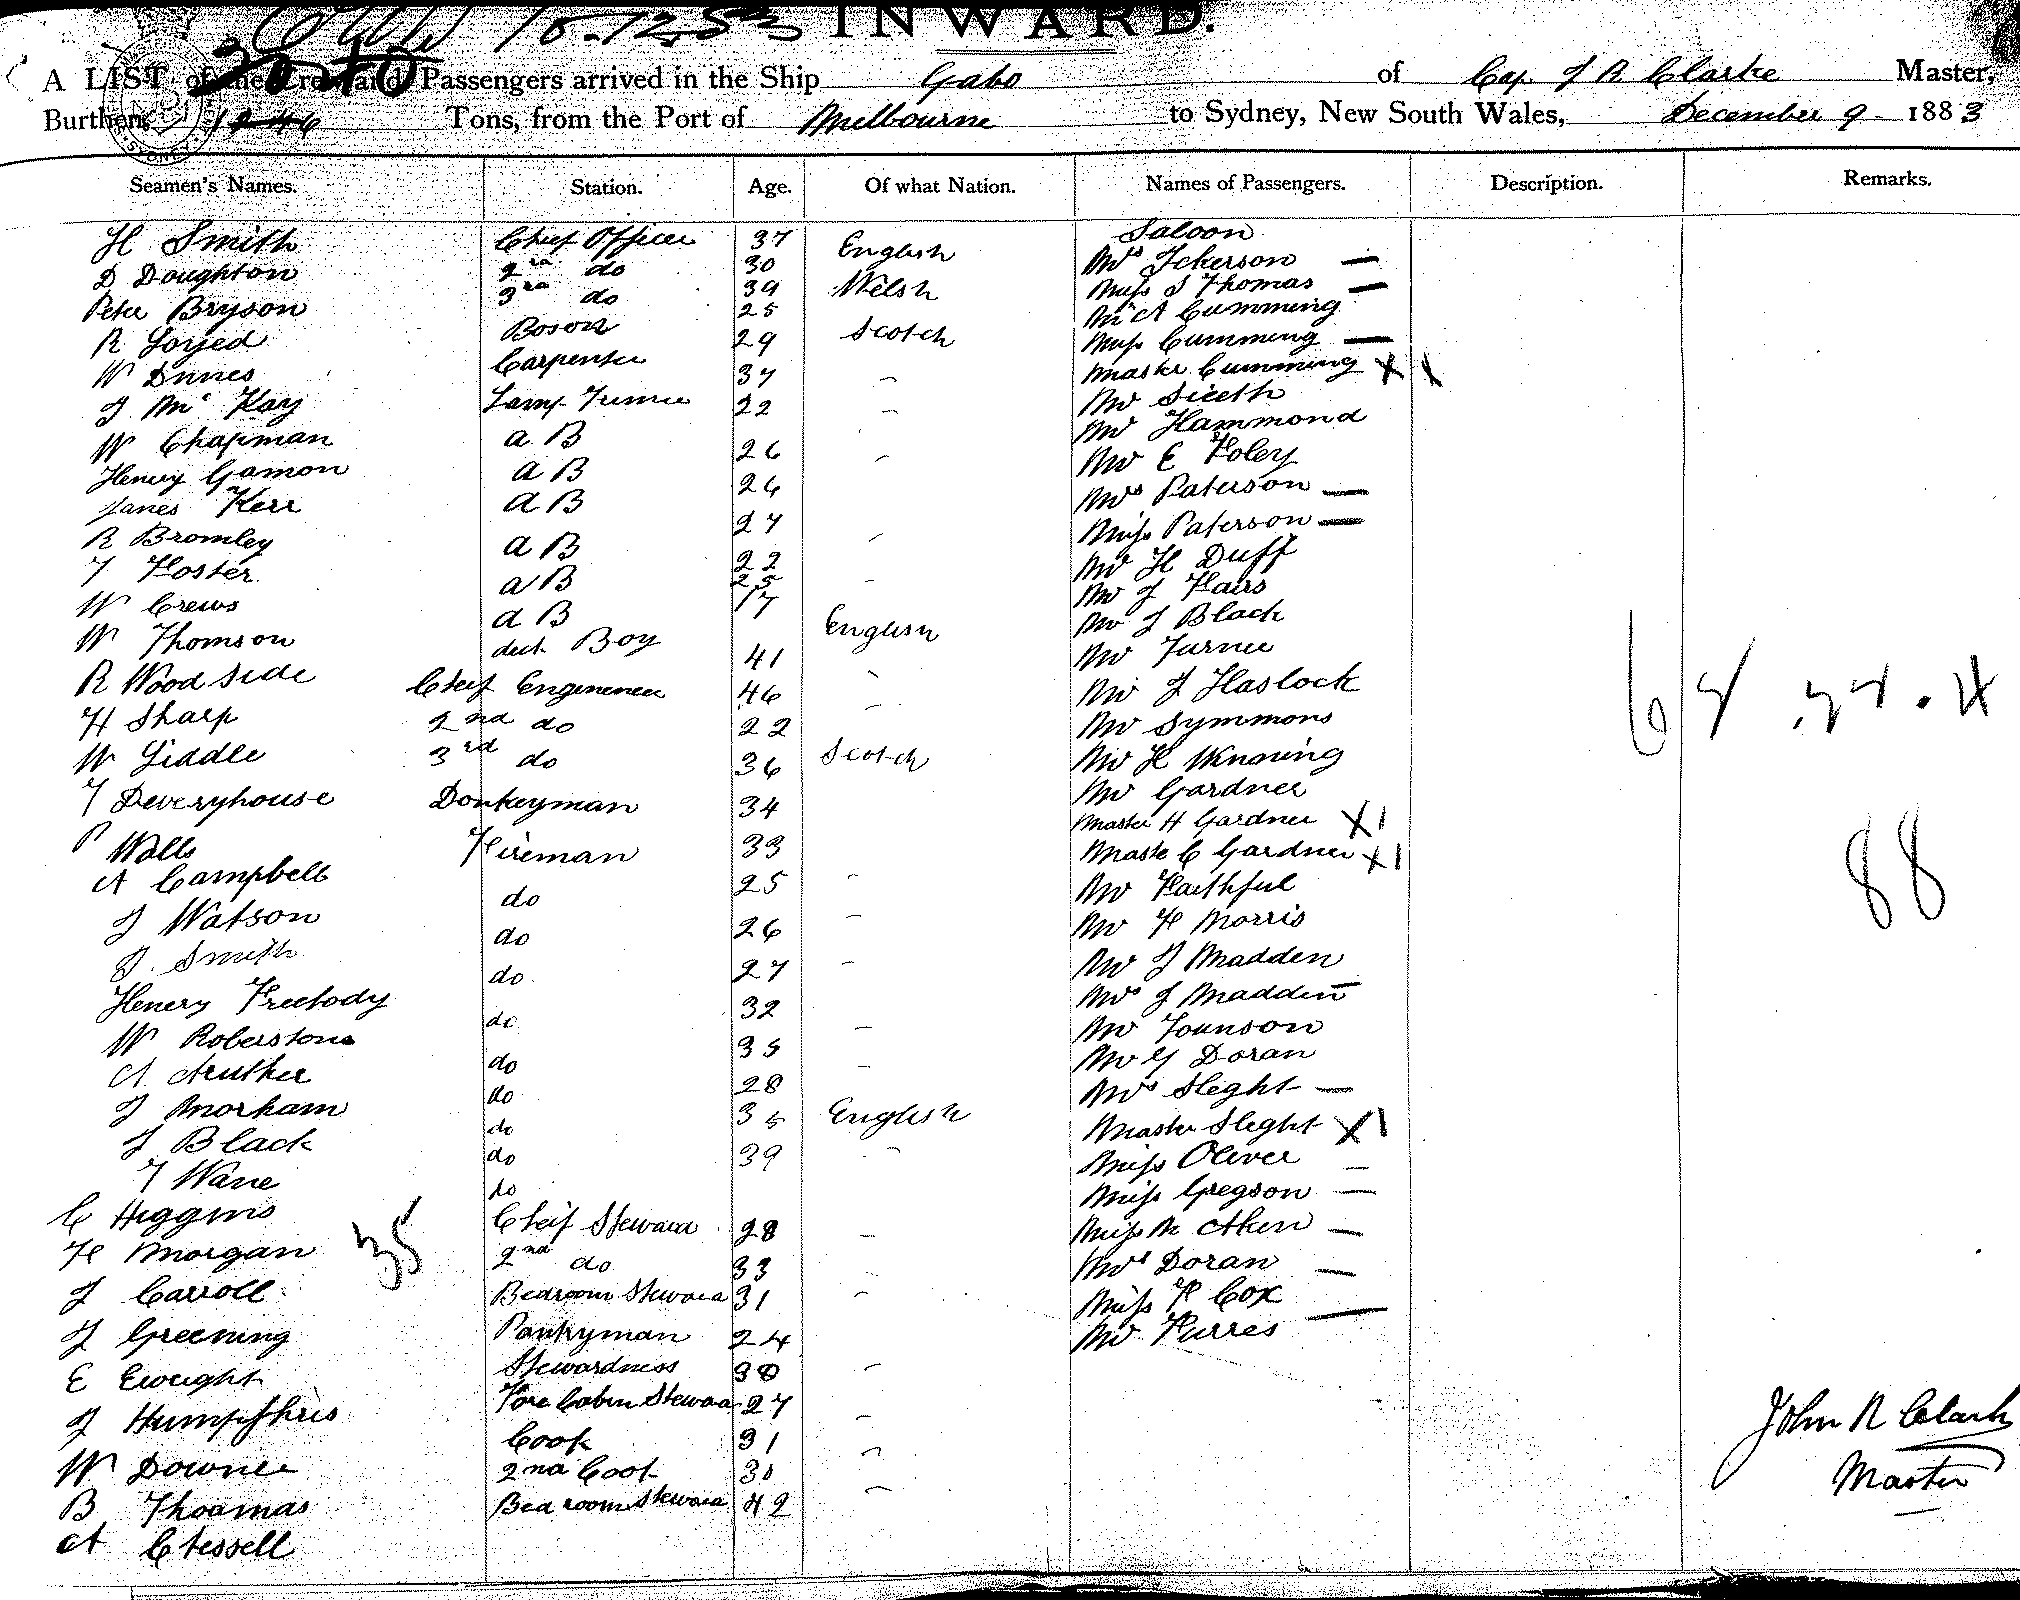 INWARD.
A LIST of the Crew and Passengers arrived in the Ship Gabo of Cap. J R Clarke Master,
Burthen 1246 Tons, from the Port of Melbourne to Sydney, New South Wales, December 9 1883
Seamen's Names. Station. Age. Of what Nation. Names of Passengers. Description. Remarks.
Saloon
H Smith Chief Officer 37 English Mrs Ickerson —
D Doughton 2nd do 30 Welsh Miss S Thomas —
Peter Bryson 3rd do 39 Scotch Mr A Cumming
R Boson 25 Miss Cumming —
W Innes Carpenter 29 Master Cumming X X
J Mc Kay Lamp Trimmer 37 Mr
W Chapman A B 22 Mr Hammond
Henry Gamon A B 26 Mr E Foley
James Kerr A B 26 Mrs Paterson —
R Bromley A B 27 Miss Paterson —
T Foster A B 22 Mr H Duff
W Crews A B 25 Mr J Fairs
W Thomson deck Boy 17 English Mr J Black
R Wood side Cheif Engineneer 41 Mr Turner
H Sharp 2nd do 46 Mr J Haslock
W Liddle 3rd do 22 Mr Symmons
T Deveryhouse Donkeyman 36 Scotch Mr H
P Walls Fireman 34 Mr Gardner
A Campbell do 33 Master H Gardner X 1
J Watson do 25 Maste C Gardner X 1
J. Smith do 26 Mr Faithful
Henery Freebody do 27 Mr F Morris
W Roberstons do 32 Mr J Madden
A Aruther do 35 Mrs J Madden —
J Morham do 28 Mr Jounson
J Black do 35 English Mr G Doran
T Wane do 39 Mrs Sleght —
C Higgins Cheif Steward 28 Master Sleght X 1
H Morgan 2nd do 33 Miss Oliver —
J Carroll Bedroom Steward 31 Miss Gregson —
J Greening Pantryman 24 Miss M Aken —
E Ewught Stewardness 30 Mrs Doran —
J Humpfhris Fore Cabin Steward 27 Miss F Cox —
W Downer Cook 31 Mr Furres
B Thoamas 2nd Cook 30
A Chessell Bed room Steward 42
38
88
John R Clark
Master